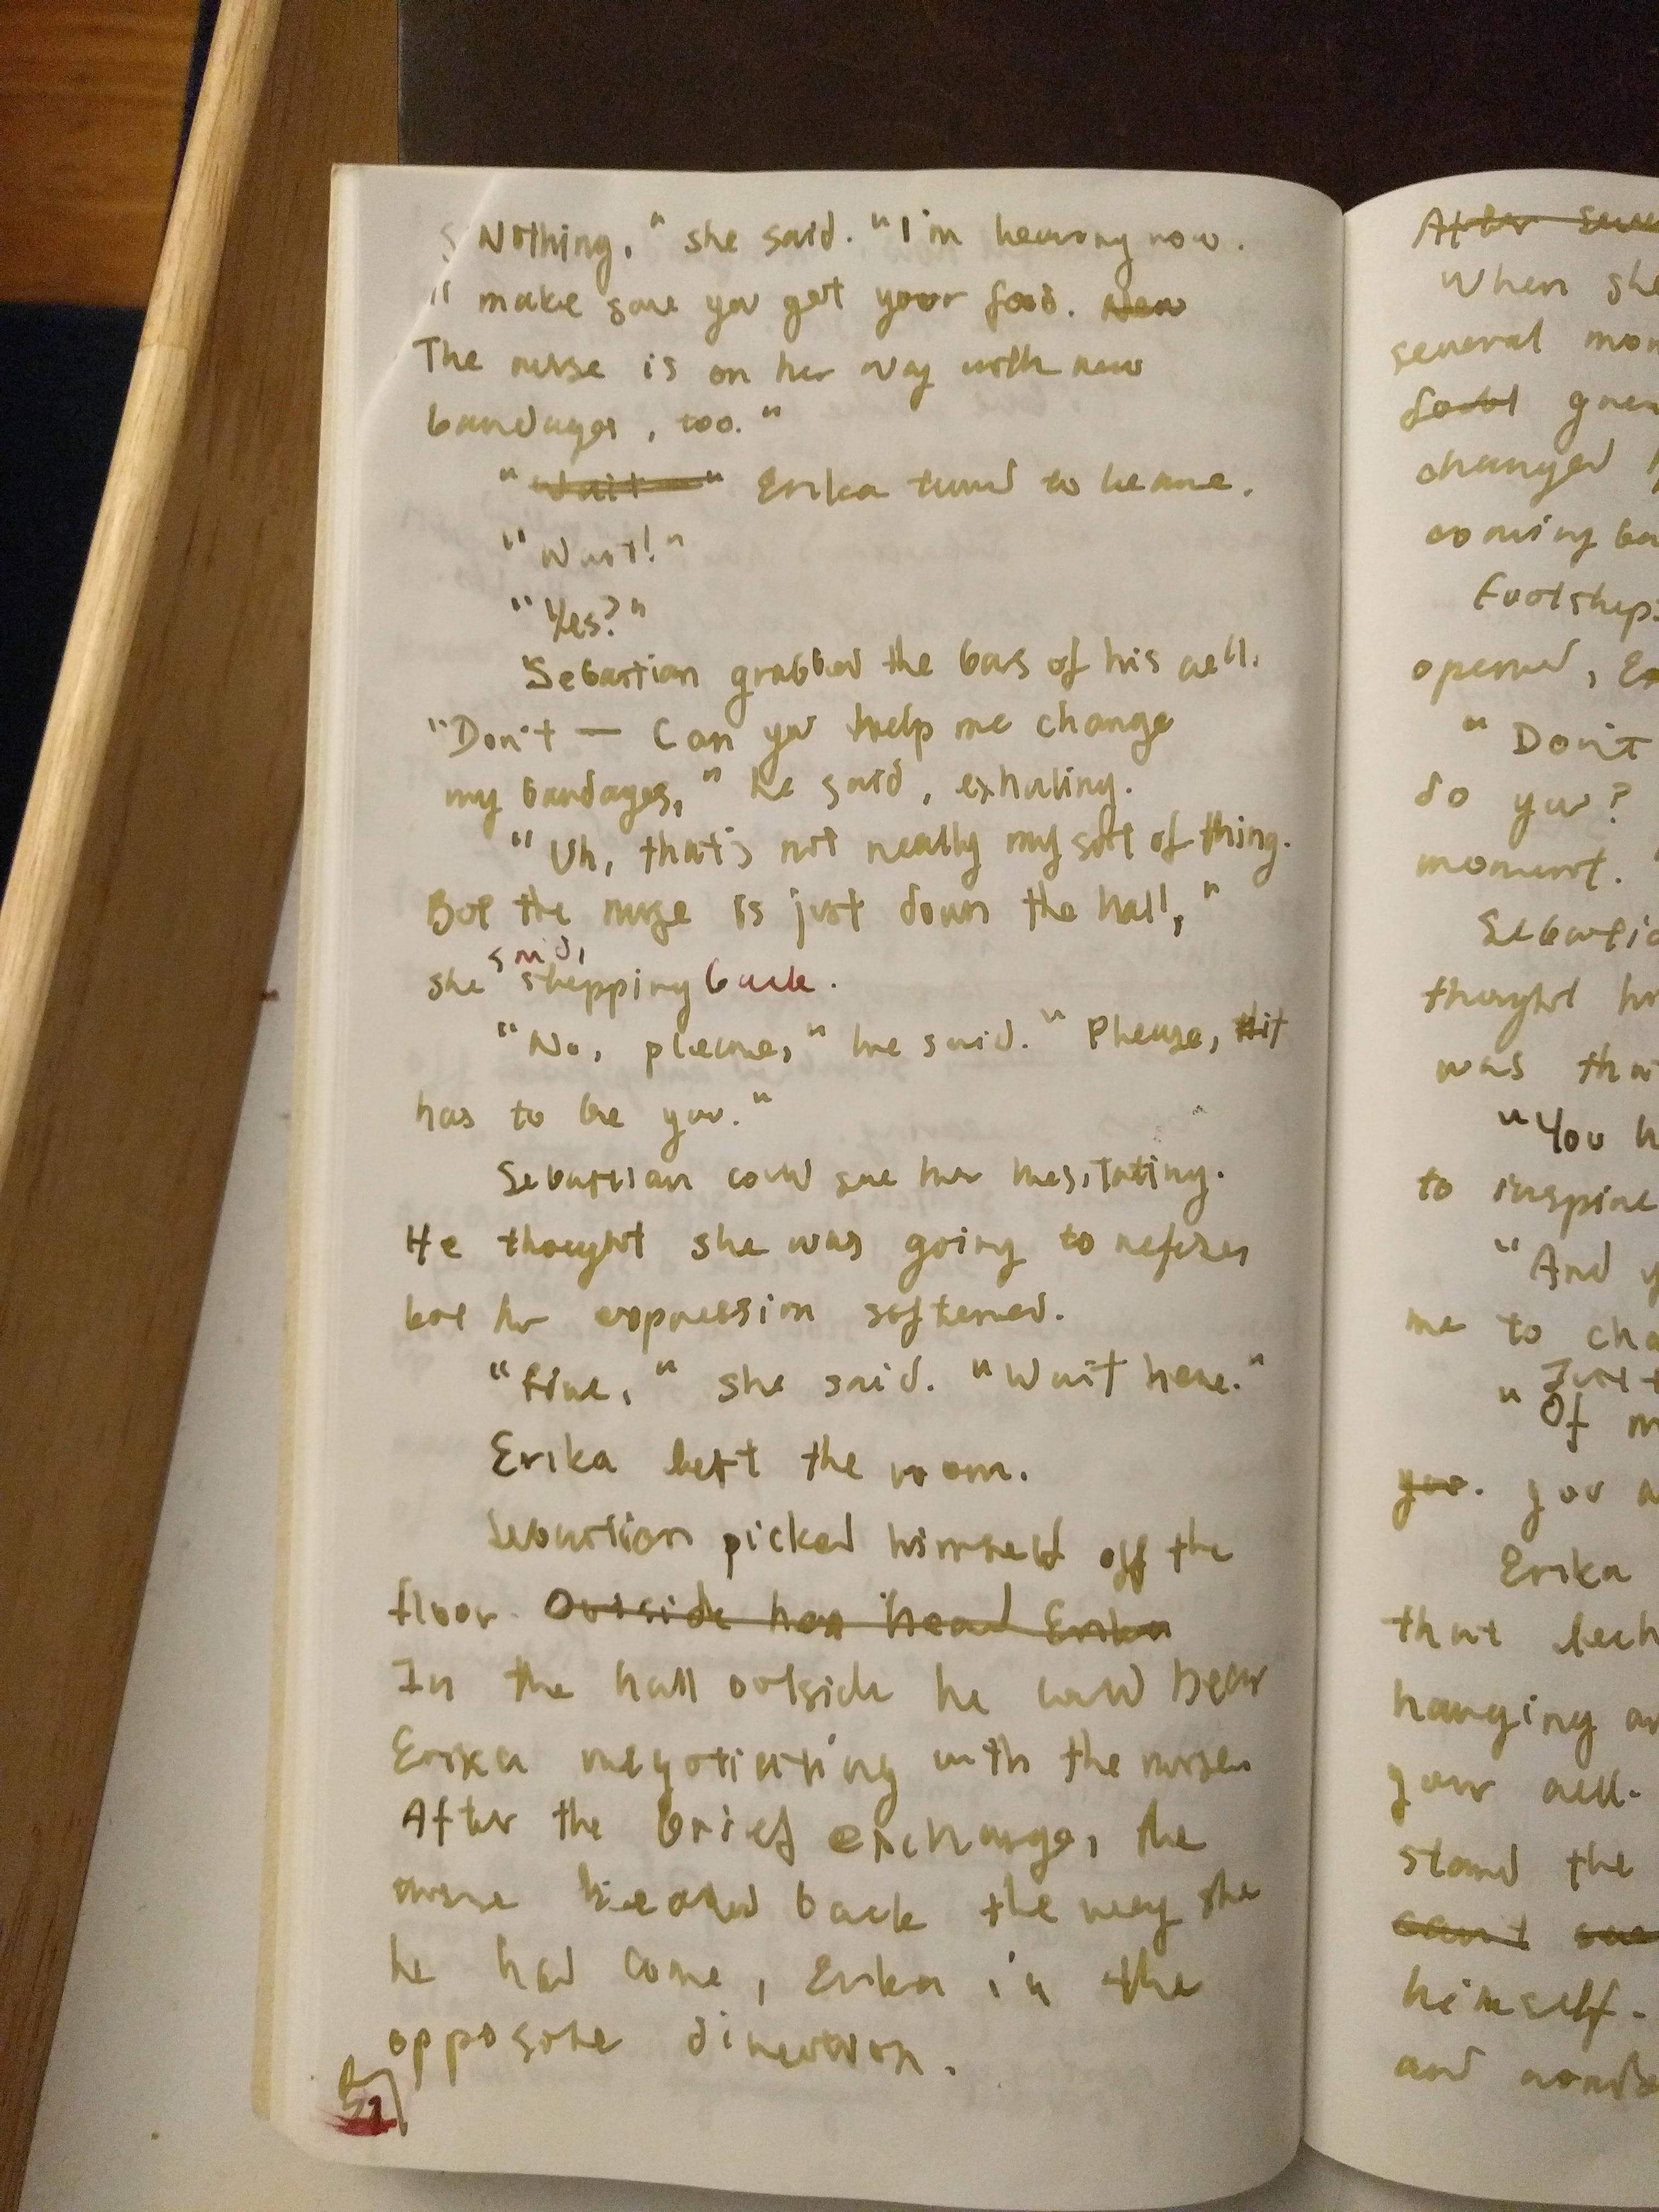 Nothing," she said. "I'm leaving now.
'll make sure you get your food. New
The nurse is on her way with new
bandages, too."
"Wait—" Erika turned to leave.
"Wait!"
"Yes?"
Sebastian grabbed the bars of his cell.
"Don't — Can you help me change
my bandages," he said, exhaling.
"Uh, that's not really my sort of thing.
But the nurse is just down the hall,"
said,
she stepping back.
"No, please," he said. "Please, it
has to be you."
Sebastian could see her hesitating.
He thought she was going to refuse,
but her expression softened.
"Fine," she said. "Wait here."
Erika left the room.
Sebastian picked himself off the
floor. Outside her head Erika
In the hall outside he could hear
Erika negotiating with the nurse.
After the brief exchange, the
nurse headed back the way she
he had come, Erika in the
opposite direction.
After
When she
several
grew
changed
coming
Footsteps
opened,
"Don't
do you?
moment.
thought
was
"You
to inspire
"And
me to
"Of
you. you
Erika
that
hanging
your cell.
stand the
can't
himself.
and